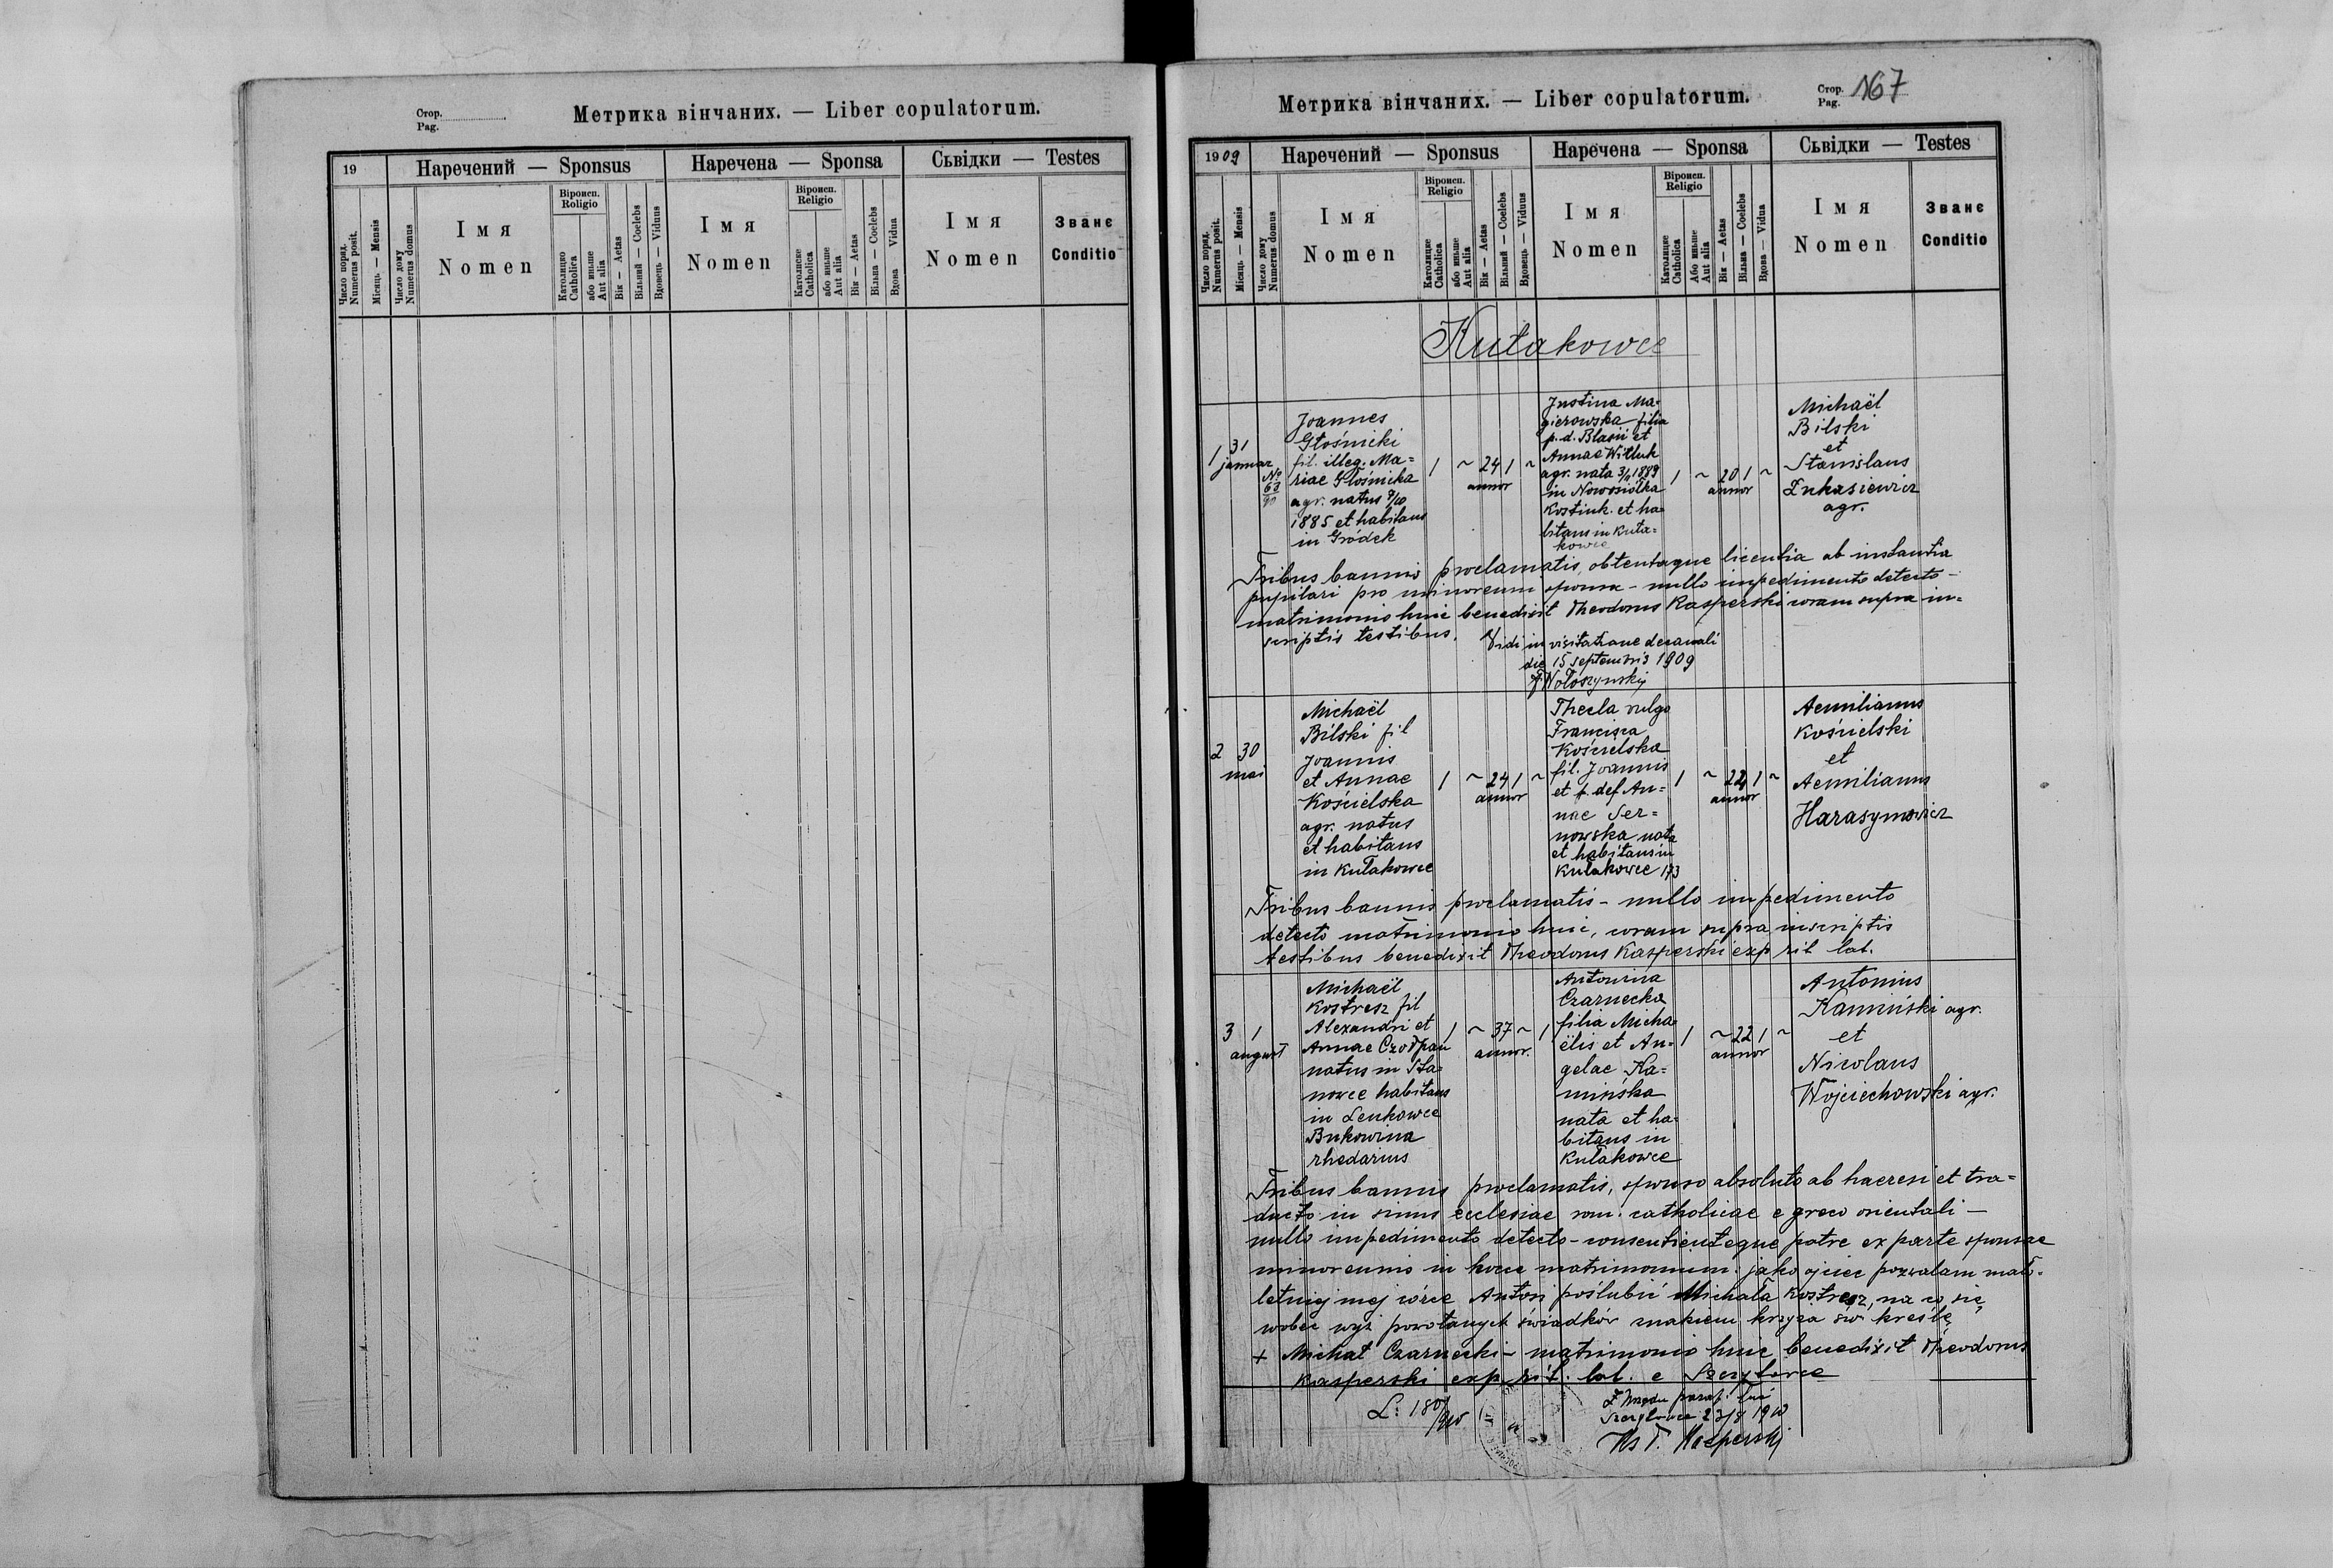 Стор.
Pag.
Метрика вінчаних. — Liber copulatorum.
19
Наречений — Sponsus
Наречена — Sponsa
Сьвідки — Testes
Число поряд.
Numerus posit.
Місяць — Mensis
Число дому
Numerus domus
Імя
Nomen
Віроисп.
Religio
Католицке
Catholica
або иньше
Aut alia
Вік — Aetas
Вільний — Coelebs
Вдовець — Viduus
Імя
Nomen
Віроисп.
Religio
Католиске
Catholica
або иньше
Aut alia
Вік — Aetas
Вільна — Coelebs
Вдова — Vidua
Імя
Nomen
Званє
Conditio
Стор.
Pag.
167
Метрика вінчаних. — Liber copulatorum.
1909
Наречений — Sponsus
Наречена — Sponsa
Сьвідки — Testes
Число поряд.
Numerus posit.
Місяць — Mensis
Число дому
Numerus domus
Імя
Nomen
Віроисп.
Religio
Католицке
Catholica
або иньше
Aut alia
Вік — Aetas
Вільний — Coelebs
Вдовець — Viduus
Імя
Nomen
Віроисп.
Religio
Католицке
Catholica
Або иньше
Aut alia
Вік — Aetas
Вільна — Coelebs
Вдова — Vidua
Імя
Nomen
Званє
Conditio
Kułakowce
1 31
januar
No
Joannes
Głośnicki
fil. illeg. Ma=
riae Głośnicka
agr. natus 9/10
1885 et habitans
in Gródek
1 ~ 24 1 ~
annor
Justina Ma-
gierowska filia
p. d. Blasii et
Annae Witluk
agr. nata 3/11 1889
in Nowosiółka
Kostiuk. et ha=
bitans in Kuła=
kowce
1 ~ 20 1 ~
annor
Michaël
Bilski
et
Stanislaus
Łukasiewicz
agr.
Tribus bannis proclamatis, obtentaque licentia ab instantia
pupilari pro minorenni sponsa - nullo impedimento detecto -
matrimonio huic benedixit Theodorus Kasperski coram supra in=
scriptis testibus.
Vidi in visitatione decanali
die 15 septembris 1909
J. Wołoszynskij
2 30
mai
Michaël
Bilski fil
Joannis
et Annae
Kościelska
agr. natus
et habitans
in Kułakowce
1 ~ 24 1 ~
annor
Thecla vulgo
Francisca
Kościelska
fil. Joannis
et p. def An=
nae Ser=
nowska nata
et habitans in
Kułakowce 173
1 ~ 22 1 ~
annor
Aemilianus
Kościelski
et
Aemilianus
Harasymowicz
Tribus bannis proclamatis - nullo impedimento
detecto matrimonio huic, coram supra inscriptis
testibus benedixit Theodorus Kasperski exp rit lat.
3 1
august
Michaël
Kostresz fil
Alexandri et
Annae Czołpan
natus in Sta=
nowce habitans
in Lenkowce
Bukowina
rhedarius
1 ~ 37 ~ 1
annor.
Antonina
Czarnecka
filia Micha=
ëlis et An=
gelae Ka=
mińska
nata et ha=
bitans in
Kułakowce
1 ~ 22 1 ~
annor
Antonius
Kamiński agr.
et
Nicolaus
Wojciechowski agr.
Tribus bannis proclamatis, sponso absoluto ab haeresi et tra=
ducto in sinus ecclesiae rom. catholicae e greco orientali -
nullo impedimento detecto - consentienteque patre ex parte sponsae
minorennis in hocce matrimonium. jako ojciec pozwalam mało=
letniej mej córce Antoni poślubić Michała Kostresz, na co się
wobec wyż powołanych świadków znakiem krzyża św kreślę
+ Michał Czarnecki - matrimonio huic benedixit Theodorus
Kasperski exp rit. lat. e Szczytowce
L: 180/910
Z Urzędu paraf.
Szczytowce 23/8 1910
Ks T. Kasperski